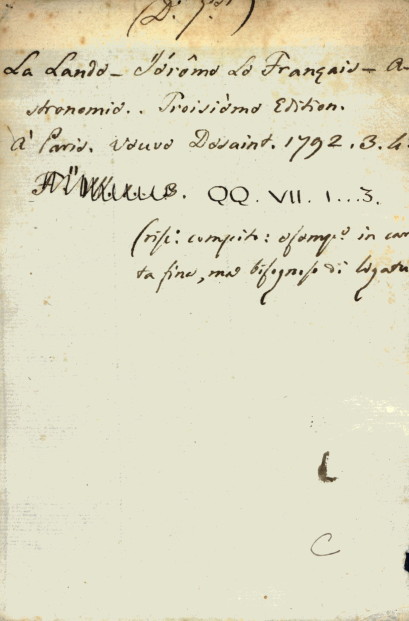 La Lande – Jérôme Le François – A-
stronomie.. Troisième Edition.
à Paris. veuve Desaint. 1792. 3. 4.
QQ. VII. 1...3.
in car
ta fine, ma bisognoso di legatu
C